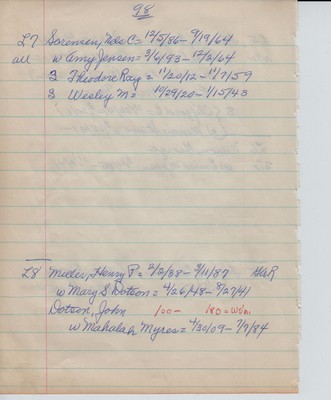 98
L7 Sorensen, Nels C= 12/5/86 - 9/19/64
all w Amy Jensen= 3/6/93 - 12/2/64
S Theodore Ray= 11/20/12 - 11/7/59
S Wesley M= 10/29/20 - 1/15/43
L8 Miller, Henry P= 2/2/38 - 9/11/87 GAR
w Mary S Dotson= 4/26/48 - 8/27/41
Dotson, John 100 - 180 = W'sm.
w Mahalah Myres= 4/30/09 - 7/7/84